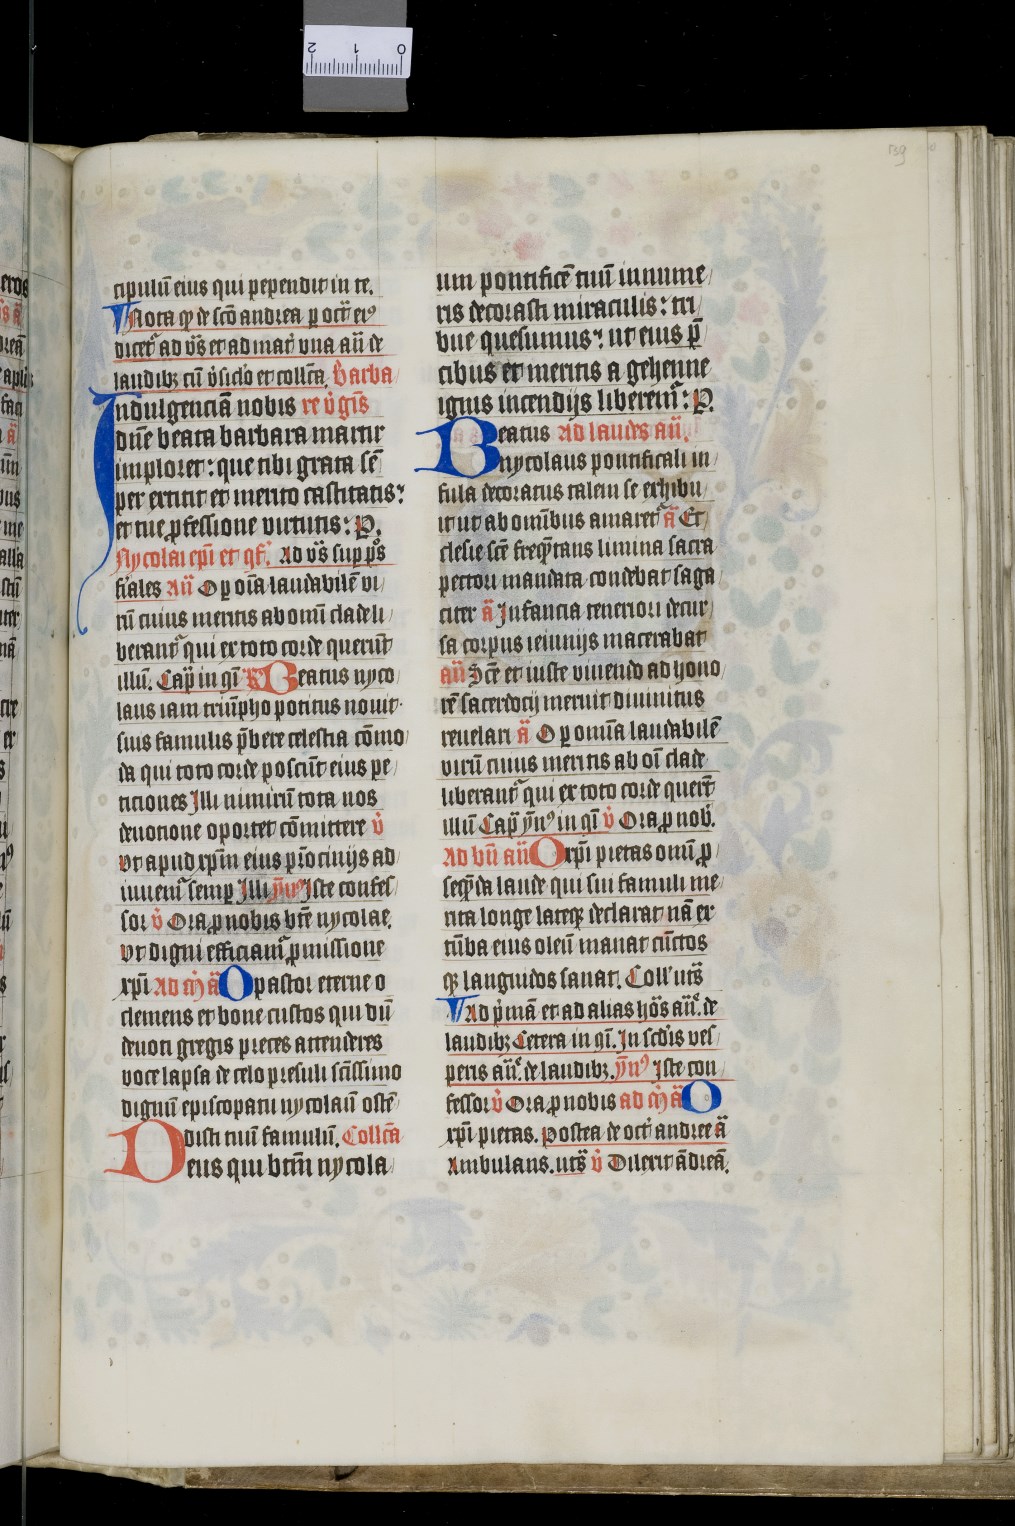 cipulū eius qui pependit in te.
Nota ꝙ de scō andrea ꝑ oct̄ eiꝰ
dicet᷑ ad vs̄ et ad mat᷑ vna an̄ de
laudibꝫ cū v̓siclo et collc̄a. Barba
Indulgenciā nobis re v̓gīs
dn̄e beata barbara martir
imploret: que tibi grata sē
per extitit et merito castitatis:
et tue ꝓfessione virtutis: P.
Nycolai ep̄i et ꝯf. Ad vs̄ sup pōs
fr̄iales An̄ O ꝑ oīa laudabilē vi
rū cuius meritis ab omī clade li
berant᷑ qui ex toto corde querūt
illū. Cap̄ in ꝯī R̷ Beatus nyco
laus iam triūpho potitus nouit
suis famulis p̄bere celestia cōmo
da qui toto corde poscūt eius pe
ticiones Illi nimirū tota nos
deuotione oportet cōmittere v̓
Vt apud xp̄m eius pr̄ociniis ad
iuuem᷑ semꝑ Illi ym̄ꝰ Iste confes
sor v̓ Ora ꝓ nobis btē nycolae.
Vt digni efficiam᷑ ꝓmissione
xp̄i Ad m̄ ā O pastor eterne o
clemens et bone custos qui dū
deuoti gregis preces attenderes
voce lapsa de celo presuli sc̄issimo
dignū episcopatu nycolaū ostē
disti tuū famulū. Collc̄a
Deus qui btm̄ nycola
um pontificē tuū innume
ris decorasti miraculis: tri
bue quesumus: ut eius p̄
cibus et meritis a gehenne
ignis incendijs liberem᷑: P.
Beatus Ad laudes an̄.
nycolaus pontificali in
fula decoratus talem se exhibu
it ut ab omībus amaret᷑ ā Ec
clesie scē freq̄ntans limina sacra
pectori mandata condebat saga
citer ā Infancia teneriori decur
sa corpus ieiunijs macerabat
an̄ Scē et iuste viuendo ad hono
rē sacerdocij meruit diuinitus
reuelari ā O ꝑ omīa laudabilē
virū cuius meritis ab oī clade
liberant᷑ qui ex toto corde querūt
illū Cap̄ ym̄ꝰ in ꝯī v̓ Ora ꝓ nob̓.
Ad bn̄ an̄ O xp̄i pietas omī ꝓ
seq̄nda laude qui sui famuli me
rita longe lateqꝫ declarat nā ex
tūba eius oleū manat cūctos
qꝫ languidos sanat. Coll' uts̄
Ad p̓mā et ad alias hōs an̄e. de
laudibꝫ Cetera in ꝯī. In scd̓is ves
peris an̄e. de laudibꝫ. ym̄ꝰ Iste con
fessor v̓ Ora ꝓ nobis ad m̄ ā O
xp̄i pietas. Postea de oct̄ andree ā
Ambulans. uts̄ v̓ Dilexit ādreā.